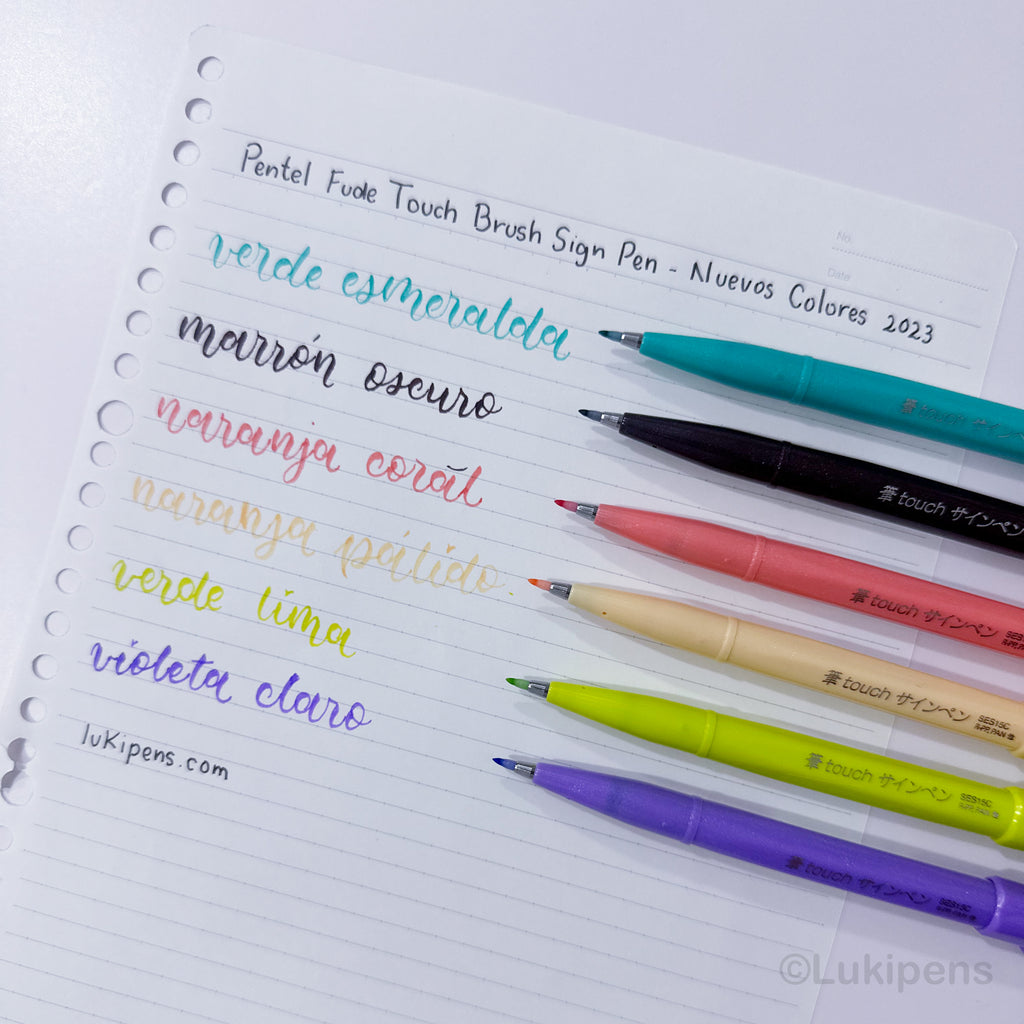 No.
Date
Pentel Fude Touch Brush Sign Pen - Nuevos Colores 2023
verde esmeralda
marrón oscuro
naranja coral
naranja pálido.
verde lima
violeta claro
lukipens.com
筆touch サインペ
筆touch サインペン
筆touch サインペン
SES15C
筆touch サインペン
SES15C
筆touch サインペン
SES15C
筆touch サインペン
SES15C
©Lukipens